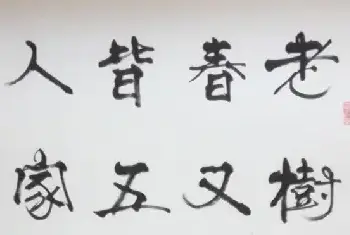 老樹
春又
皆五
人家